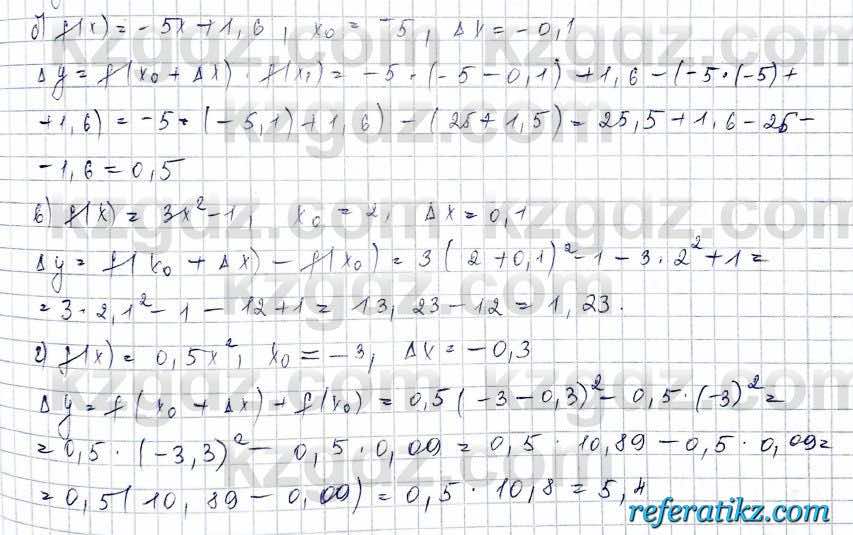 б) f(x) = -5x + 1,6, x₀ = -5, Δx = -0,1
Δy = f(x₀ + Δx) · f(x₀) = -5 · (-5 - 0,1) + 1,6 - (-5 · (-5) +
+1,6) = -5 · (-5,1) + 1,6) - (25 + 1,5) = 25,5 + 1,6 - 25 -
-1,6 = 0,5
в) f(x) = 3x² - 1, x₀ = 2, Δx = 0,1
Δy = f(x₀ + Δx) - f(x₀) = 3(2 + 0,1)² - 1 - 3 · 2² + 1 =
= 3 · 2,1² - 1 - 12 + 1 = 13,23 - 12 = 1,23.
г) f(x) = 0,5x², x₀ = -3, Δx = -0,3
Δy = f(x₀ + Δx) + f(x₀) = 0,5(-3 - 0,3)² - 0,5 · (-3)² =
= 0,5 · (-3,3)² - 0,5 · 0,09 = 0,5 · 10,89 - 0,5 · 0,09 =
= 0,5(10,89 - 0,09) = 0,5 · 10,8 = 5,4
referatikz.com
kzgdz.com